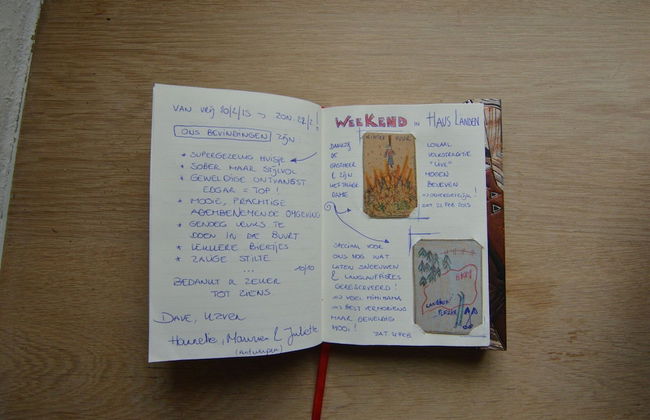 VAN VRIJ 20/2/15 → ZON. 22/2!
ONS BEVINDINGEN ZIJN:
* SUPERGEZELLIG HUISJE
* SOBER MAAR STIJLVOL
* GEWELDIGE ONTVANGST
EDGAR = TOP!
* MOOIE, PRACHTIGE
ADEMBENEMENDE OMGEVING
* GENOEG LEUKS TE
DOEN IN DE BUURT
* LEKKERE BIERTJES
* ZALIGE STILTE
...
10/10
BEDANKT & ZEKER
TOT ZIENS.
DAVE, LIEVEN
Hanneke, & Juliette
(Antwerpen)
WEEKEND in HAUS LANDEN
DANKZIJ
DE
GASTHEER
& ZIJN
DAME
WINTER VUUR
LOKAAL
"LIVE"
MOGEN
BELEVEN
ZAT. 21 FEB 2015
SPECIAAL VOOR
ONS NOG WAT
LATEN SNEEUWEN
& LANGLAUFPISTES
GEPREPAREERD!
=> VEEL MINI MAMA
=> BEST VERMOEIEND
MAAR GEWELDIG
MOOI!
ZAT. FEB
LANGLAUF
PLEZIER